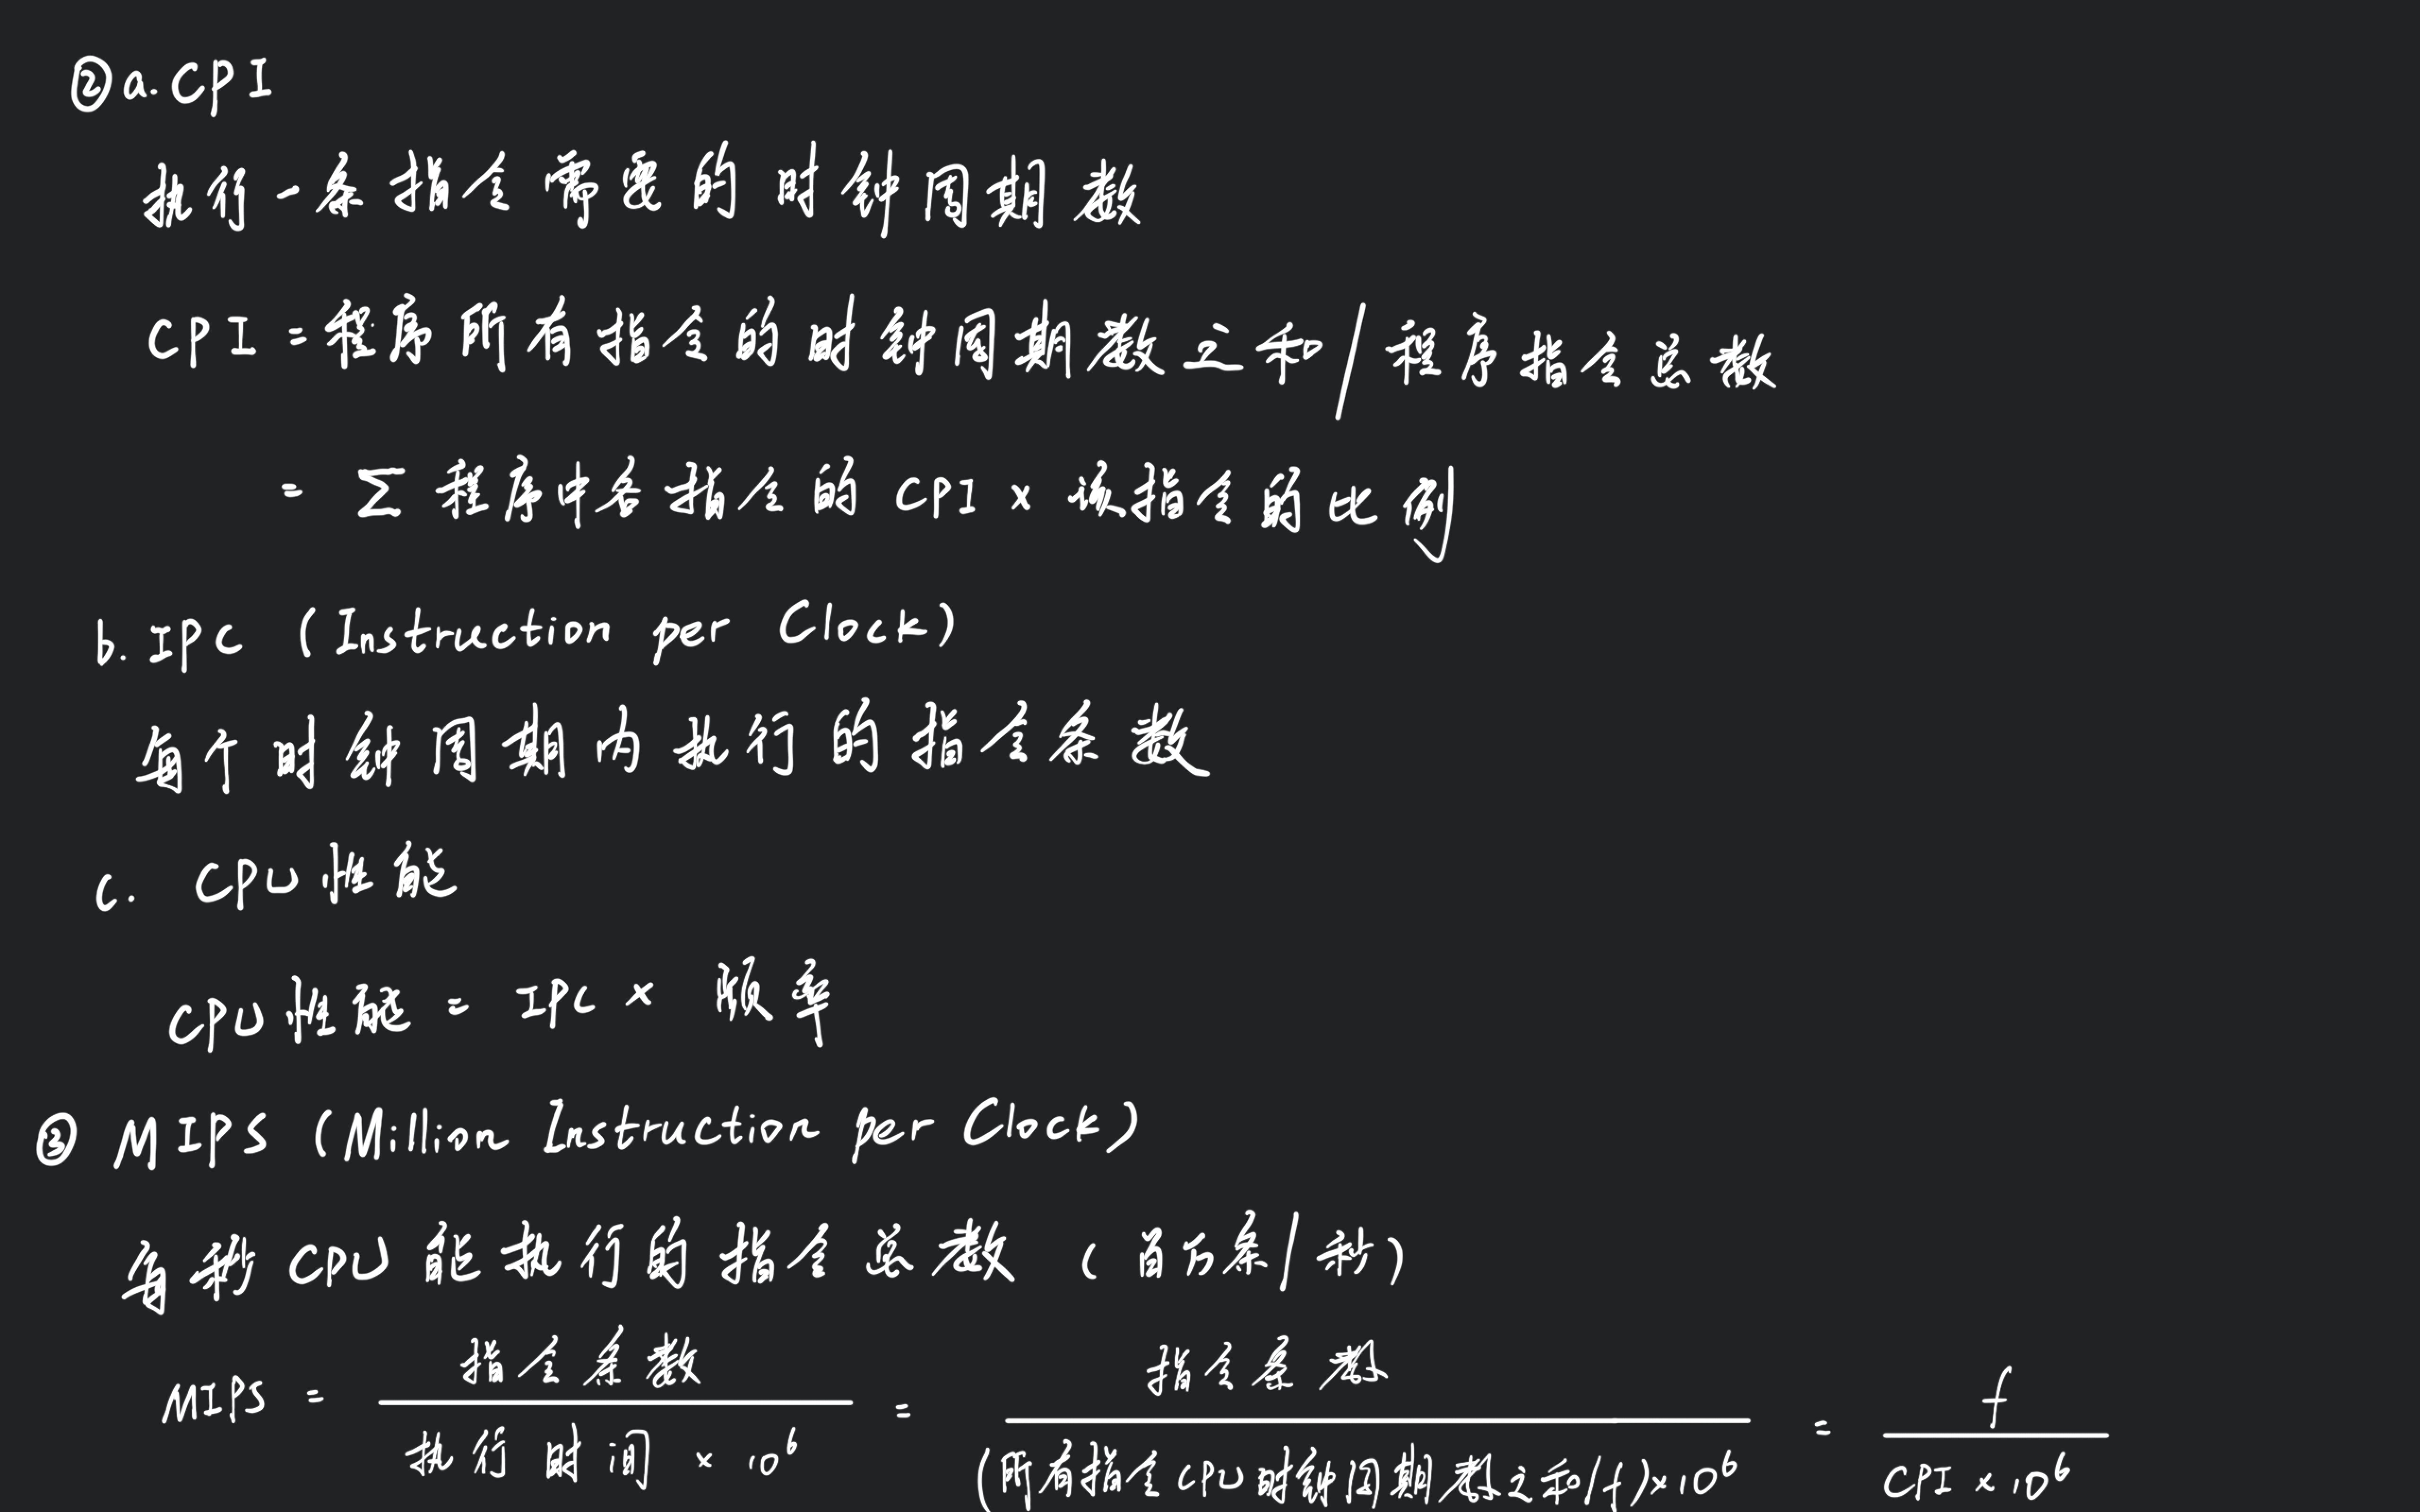 ②a. CPI
执行一条指令需要的时钟周期数
CPI = 程序所有指令的时钟周期数之和 / 程序指令总数
= Σ 程序中各指令的 CPI × 该指令的比例
b. IPC (Instruction per Clock)
每个时钟周期内执行的指令条数
c. CPU性能
CPU性能 = IPC × 频率
③ MIPS (Million Instruction per Clock)
每秒CPU能执行的指令总数 (百万条/秒)
MIPS = 指令条数 / 执行时间 × 10⁶ = 指令条数 / (所有指令CPU时钟周期数之和/f) × 10⁶ = f / CPI × 10⁶